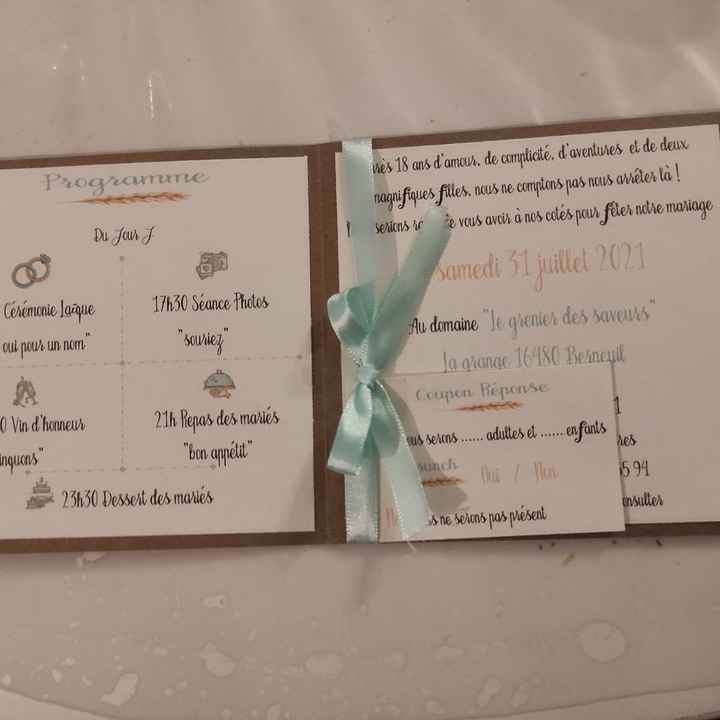 Programme
Du Jour J
Cérémonie Laïque
oui pour un nom"
17h30 Séance Photos
"souriez"
0 Vin d'honneur
inquons"
21h Repas des mariés
"bon appétit"
23h30 Dessert des mariés
rès 18 ans d'amour, de complicité, d'aventures et de deux
magnifiques filles, nous ne comptons pas nous arrêter là !
serions vous avoir à nos cotés pour fêter notre mariage
samedi 31 juillet 2021
Au domaine "le grenier des saveurs"
la grange 16480 Berneuil
Coupon Réponse
ous serons ...... adultes et ...... enfants
runch Oui / Non
s ne serons pas présent
1
res
65 94
onsulter